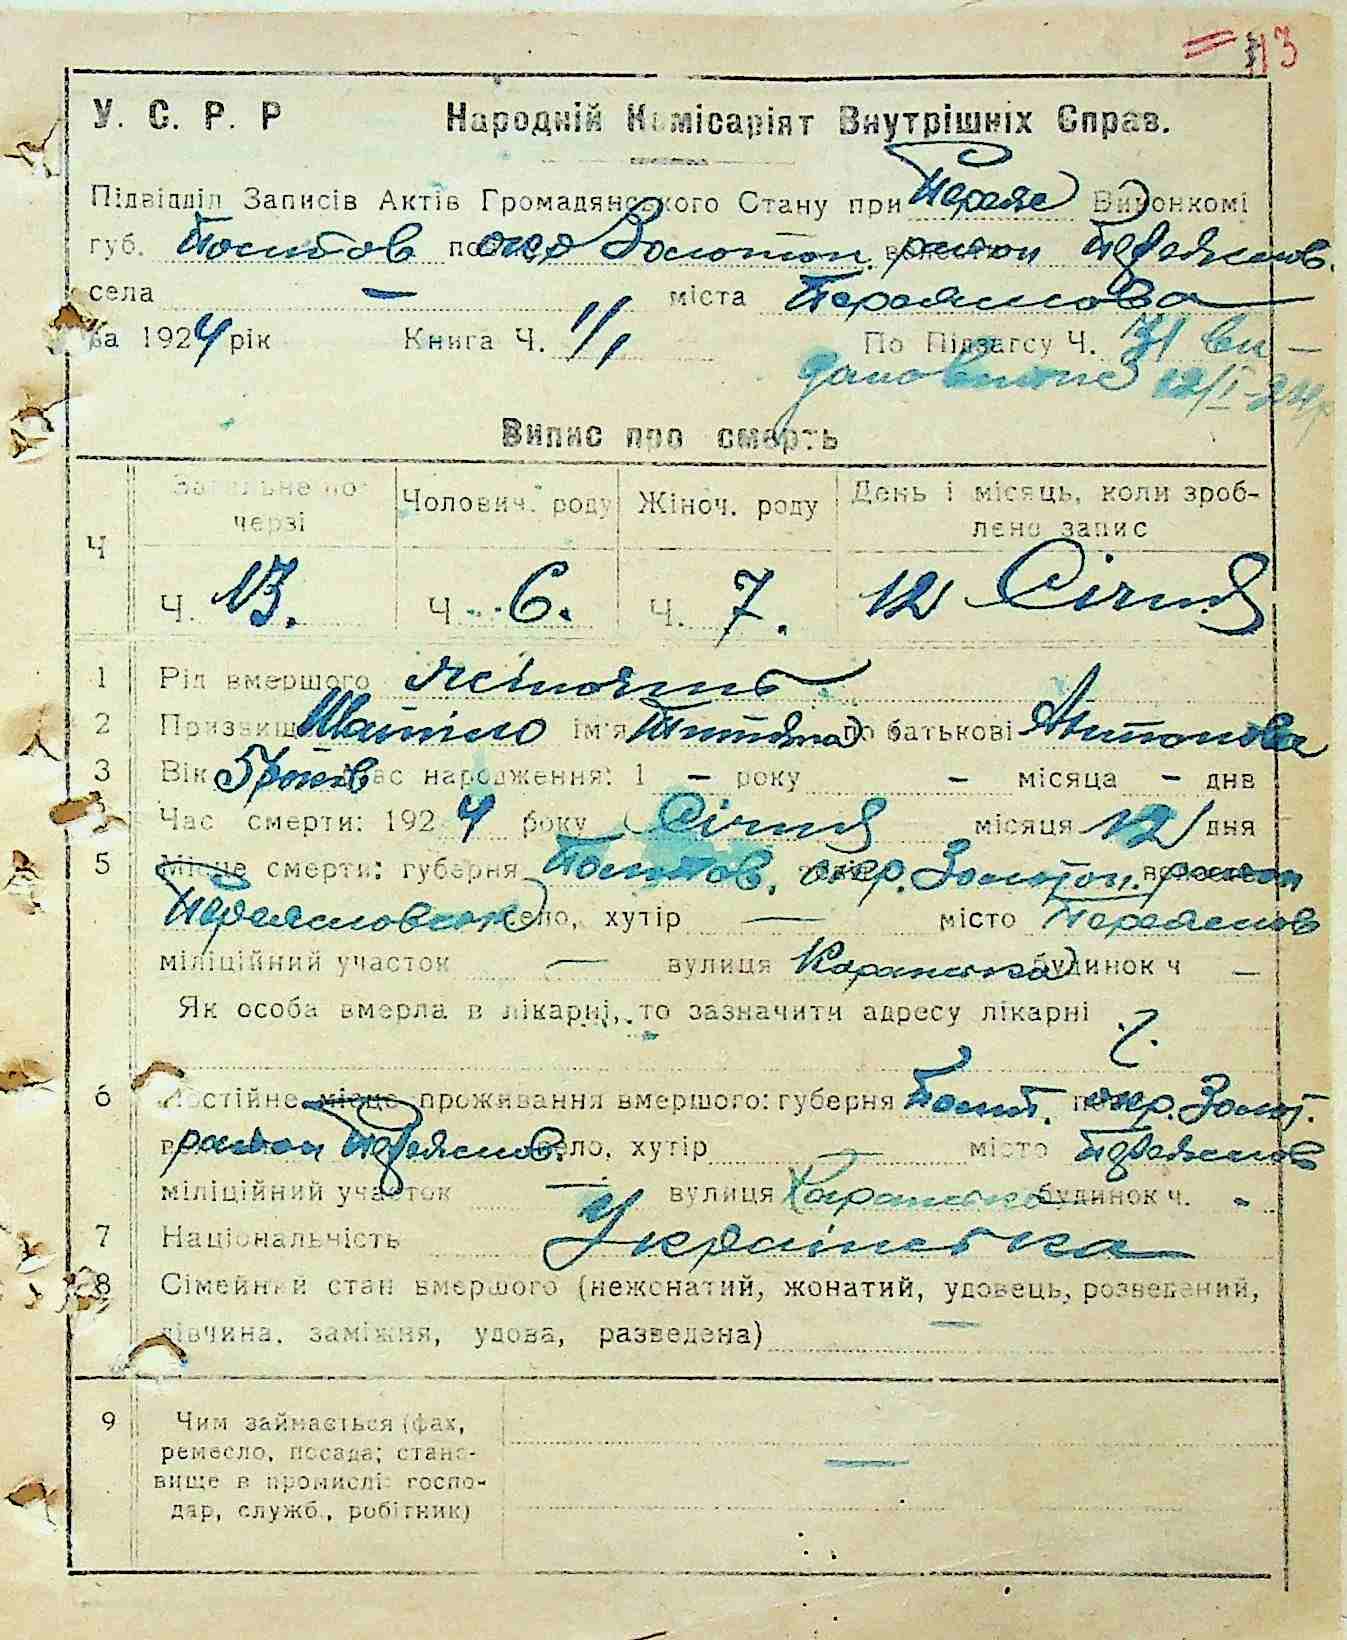 13
У. С. Р. Р Народній Комісаріят Внутрішніх Справ.
Підвідділ Записів Актів Громадянського Стану при Переяс Виконкомі
губ. Полтов окр Золотон. район Переяслов.
села — міста Переяслова
за 1924 рік Книга Ч. 1/1 По Підзагсу Ч. 31 ви-
12/I-24р
Випис про смерть
Ч Загальне по черзі Чолович. роду Жіноч. роду День і місяць, коли зроб-
лено запис
Ч. 13. Ч. 6. Ч. 7. 12 Січня
1 Рід вмершого жіночий
2 Призвищ Шапіло ім'я Титяна по батькові Антонова
3 Вік 57 років час народження: 1 — року — місяца — днв
Час смерти: 1924 року Січня місяця 12 дня
5 Місце смерти: губерня Полтов. окр. Золотон. район
Переясловськ село, хутір — місто Переяслов
міліційний участок — вулиця Каранська будинок ч —
Як особа вмерла в лікарні, то зазначити адресу лікарні
6 Постійне місце проживання вмершого: губерня Полт. окр. Золот.
район Переяслов. село, хутір — місто Переяслов
міліційний участок — вулиця Каранська будинок ч. -
7 Національність Українська
8 Сімейний стан вмершого (нежонатий, жонатий, удовець, розведений,
дівчина, заміжня, удова, разведена)
9 Чим займається (фах,
ремесло, посада; стано-
вище в промислі: госпо-
дар, служб., робітник) —